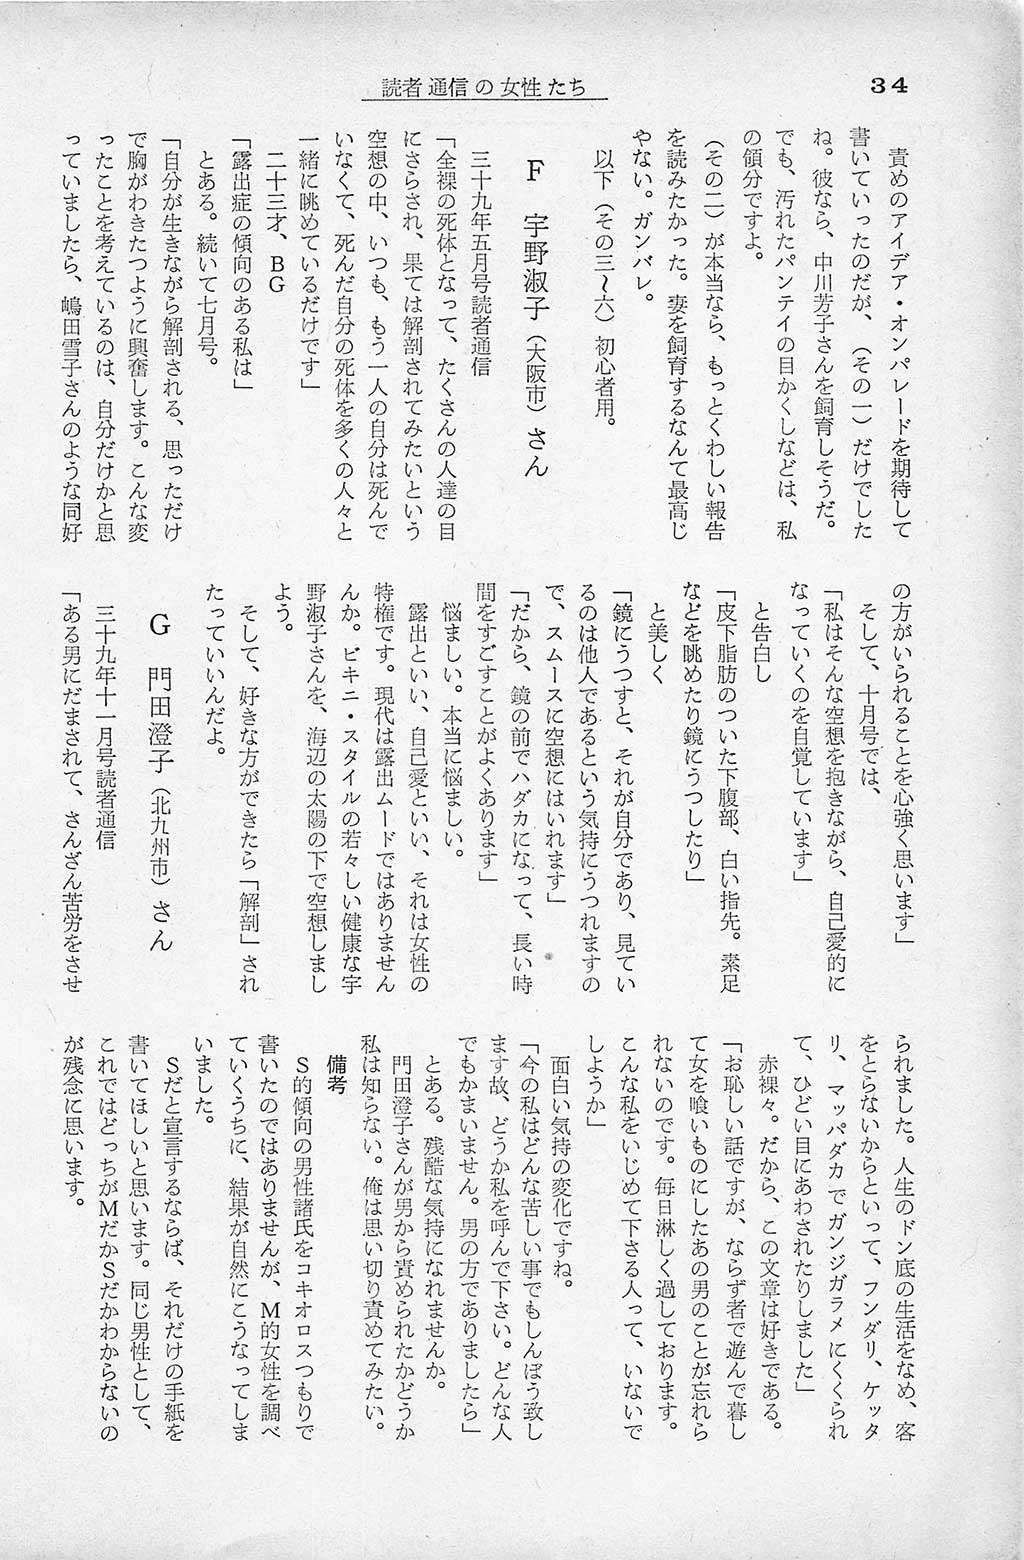 34
読者通信の女性たち
責めのアイデア・オンパレードを期待して
書いていったのだが、（その一）だけでした
ね。彼なら、中川芳子さんを飼育しそうだ。
でも、汚れたパンテイの目かくしなどは、私
の領分ですよ。
（その二）が本当なら、もっとくわしい報告
を読みたかった。妻を飼育するなんて最高じ
ゃない。ガンバレ。
以下（その三〜六）初心者用。
F　宇野淑子（大阪市）さん
三十九年五月号読者通信
「全裸の死体となって、たくさんの人達の目
にさらされ、果ては解剖されてみたいという
空想の中、いつも、もう一人の自分は死んで
いなくて、死んだ自分の死体を多くの人々と
一緒に眺めているだけです」
二十三才、BG
「露出症の傾向のある私は」
とある。続いて七月号。
「自分が生きながら解剖される、思っただけ
で胸がわきたつように興奮します。こんな変
ったことを考えているのは、自分だけかと思
っていましたら、嶋田雪子さんのような同好
の方がいられることを心強く思います」
そして、十月号では、
「私はそんな空想を抱きながら、自己愛的に
なっていくのを自覚しています」
と告白し
「皮下脂肪のついた下腹部、白い指先。素足
などを眺めたり鏡にうつしたり」
と美しく
「鏡にうつすと、それが自分であり、見てい
るのは他人であるという気持にうつれますの
で、スムースに空想にはいれます」
「だから、鏡の前でハダカになって、長い時
間をすごすことがよくあります」
悩ましい。本当に悩ましい。
露出といい、自己愛といい、それは女性の
特権です。現代は露出ムードではありません
んか。ビキニ・スタイルの若々しい健康な宇
野淑子さんを、海辺の太陽の下で空想しまし
よう。
そして、好きな方ができたら「解剖」され
たっていいんだよ。
G　門田澄子（北九州市）さん
三十九年十一月号読者通信
「ある男にだまされて、さんざん苦労をさせ
られました。人生のドン底の生活をなめ、客
をとらないからといって、フンダリ、ケッタ
リ、マッパダカでガンジガラメにくくられ
て、ひどい目にあわされたりしました」
赤裸々。だから、この文章は好きである。
「お恥しい話ですが、ならず者で遊んで暮し
て女を喰いものにしたあの男のことが忘れら
れないのです。毎日淋しく過しております。
こんな私をいじめて下さる人って、いないで
しようか」
面白い気持の変化ですね。
「今の私はどんな苦しい事でもしんぼう致し
ます故、どうか私を呼んで下さい。どんな人
でもかまいません。男の方でありましたら」
とある。残酷な気持になれませんか。
門田澄子さんが男から責められたかどうか
私は知らない。俺は思い切り責めてみたい。
備考
S的傾向の男性諸氏をコキオロスつもりで
書いたのではありませんが、M的女性を調べ
ていくうちに、結果が自然にこうなってしま
いました。
Sだと宣言するならば、それだけの手紙を
書いてほしいと思います。同じ男性として、
これではどっちがMだかSだかわからないの
が残念に思います。